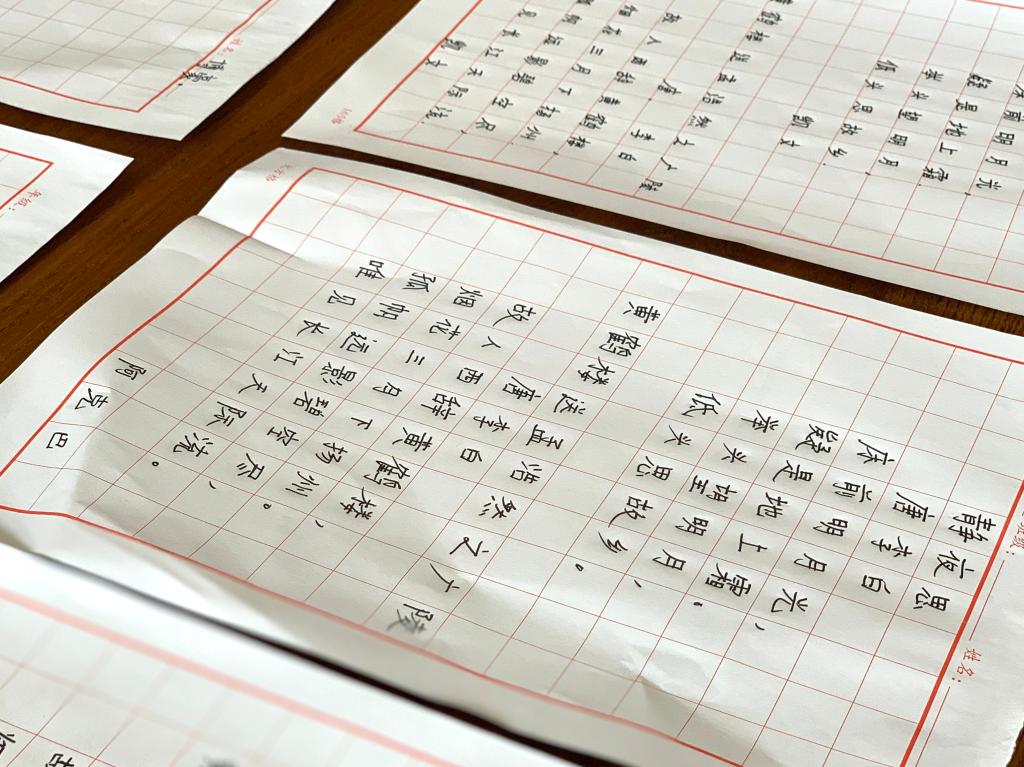 静夜思
唐 李白
床前明月光，
疑是地上霜。
举头望明月，
低头思故乡。
黄鹤楼送孟浩然之广陵
唐 李白
故人西辞黄鹤楼，
烟花三月下扬州。
孤帆远影碧空尽，
唯见长江天际流。
阿克巴
班级：
姓名：
前明月光，
疑是地上霜。
举头望明月，
低头思故乡。
鹤楼送孟浩然之广陵
唐 李白
故人西辞黄鹤楼，
烟花三月下扬州。
帆远影碧空尽，
见长江天际流。
姓名：
年级：